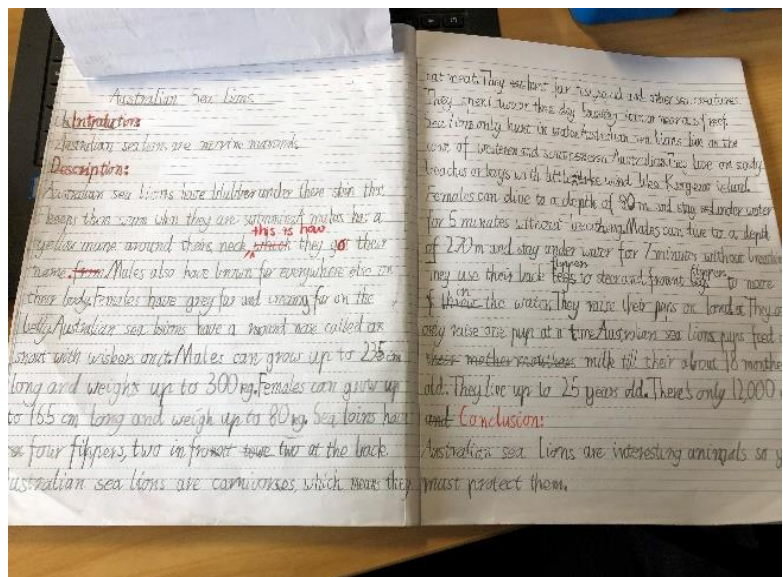 Australian Sea Lions
Introduction
Australian sealions are marine mammals
Description:
Australian sea lions have blubber under there skin this
keeps them warm when they are swimming males has a
this is how
yellow mane around there neck which they got their
name. from Males also have brown fur everywhere else on
their body. Females have grey fur and creamy fur on the
belly. Australian sea lions have a round nose called a
snout with wiskers on it. Males can grow up to 235 cm
long and weigh up to 300 kg. Females can grow up
to 165 cm long and weigh up to 80 kg. Sea loins have
four flippers, two in front two at the back
Australian sea lions are carnivores, which means they
eat meat. They eat for fish, squid and other sea creatures.
They spend most the day
Sea lions only hunt in water. Australian sea lions live on the
cost of western and south Australia. They live on sandy
beachs or bays with little wind like Kangaroo island
Females can dive to a depth of 80 m and stay under water
for 5 minutes without breathing. Males can dive to a depth
of 270 m and stay under water for 7 minutes without
flippers flippers
They use their back legs to steer and front legs to move
in
the water. They raise their pups on land. They
only raise one pup at a time. Australian sea lions pups feed
their mother milk till their about 18 months
old. They live up to 25 years old. There's only 12,000
and Conclusion:
Australian sea lions are interesting animals so
must protect them.